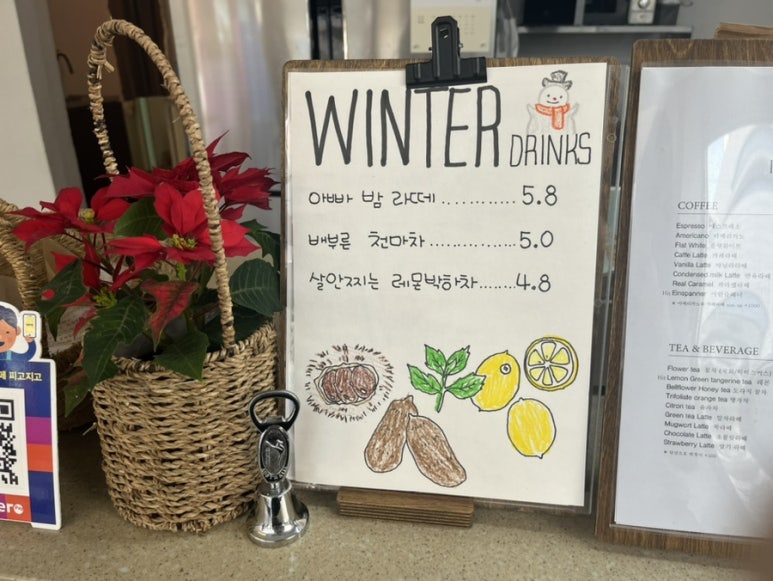 WINTER
DRINKS
아빠 밤 라떼 ............ 5.8
배부른 천마차 ............... 5.0
살안찌는 레몬박하차 ....... 4.8
피고지고
COFFEE
Espresso 에스프레소
Americano 아메리카노
Flat White 플랫화이트
Caffe Latte 카페라떼
Vanilla Latte 바닐라라떼
Condensed milk Latte 연유라떼
Real Caramel 카라멜라떼
Einspanner
TEA & BEVERAGE
Flower tea
Lemon Green tangerine tea
Bellflower Honey tea 도라지 꿀차
Trifoliate orange tea 탱자차
Citron tea 유자차
Green tea Latte 말차라떼
Mugwort Latte 쑥라떼
Chocolate Latte 초콜릿라떼
Strawberry Latte 딸기 라떼